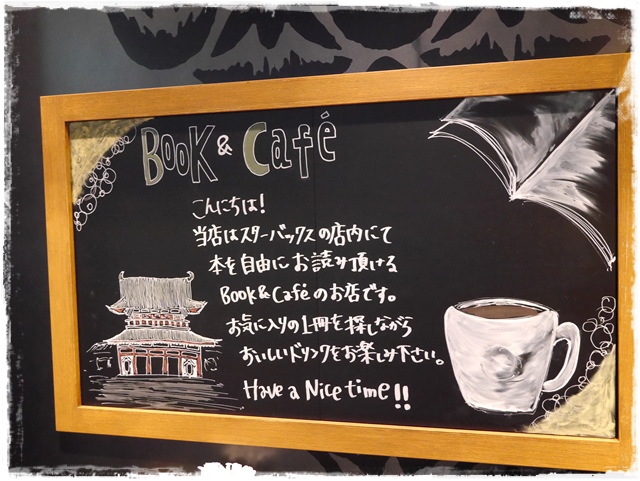 Book & Café
こんにちは!
当店はスターバックスの店内にて
本を自由にお読み頂ける
Book & Café のお店です。
お気に入りの1冊を探しながら
おいしいドリンクをお楽しみ下さい。
Have a Nice time!!